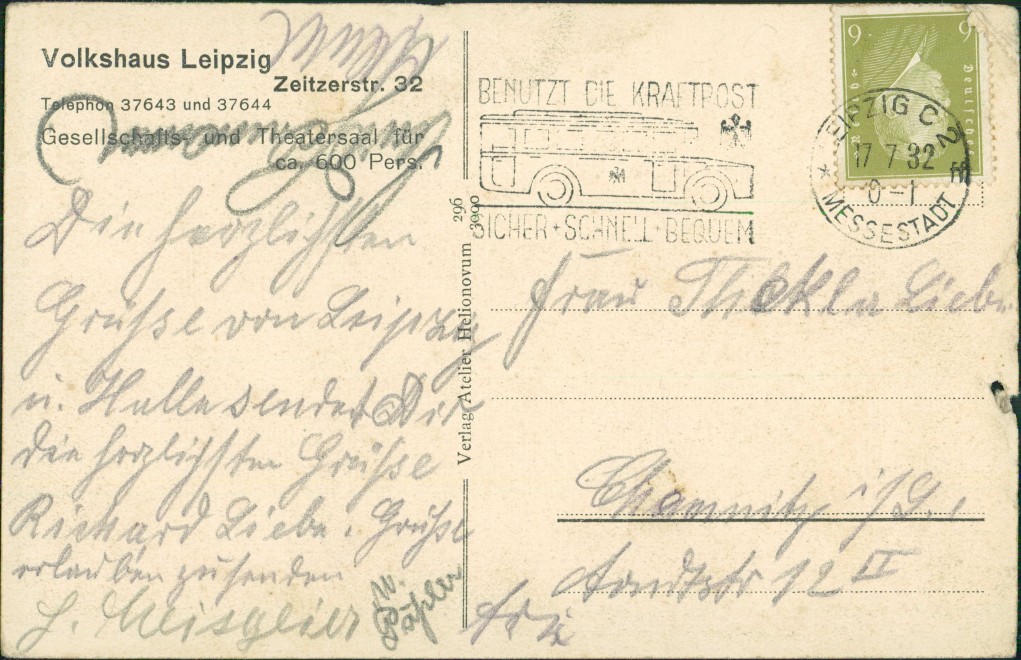 Volkshaus Leipzig
Zeitzerstr. 32
Telephon 37643 und 37644
Gesellschafts- und Theatersaal für
ca. 600 Pers.
Die herzlichsten
Grüße von Leipzig
u. Halle sendet Dir
die herzlichsten Grüße
Richard Liebe. Grüße
erlauben zu senden
Verlag Atelier Helionovum 296 3000
BENUTZT DIE KRAFTPOST
SICHER + SCHNELL + BEQUEM
LEIPZIG C 2
17 7 32
0-1
MESSESTADT
9 9
Frau Thekla Liebe
Chemnitz i/S.,
Arndtstr 12 II